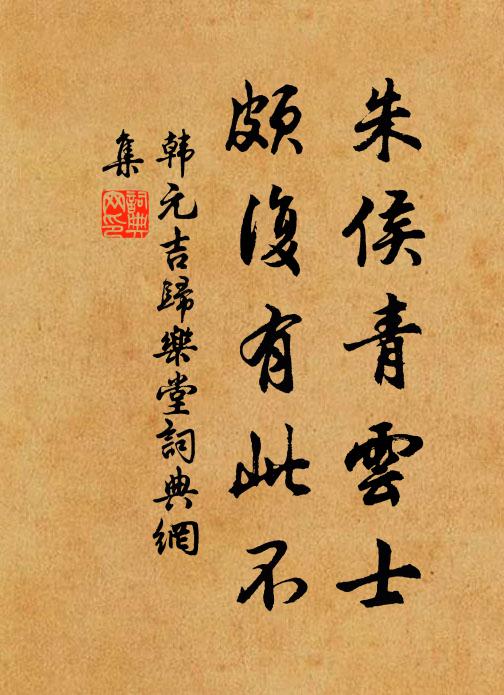 朱侯青雲士
頗復有此不
韩元吉歸樂堂詞典網
集
詞典網印